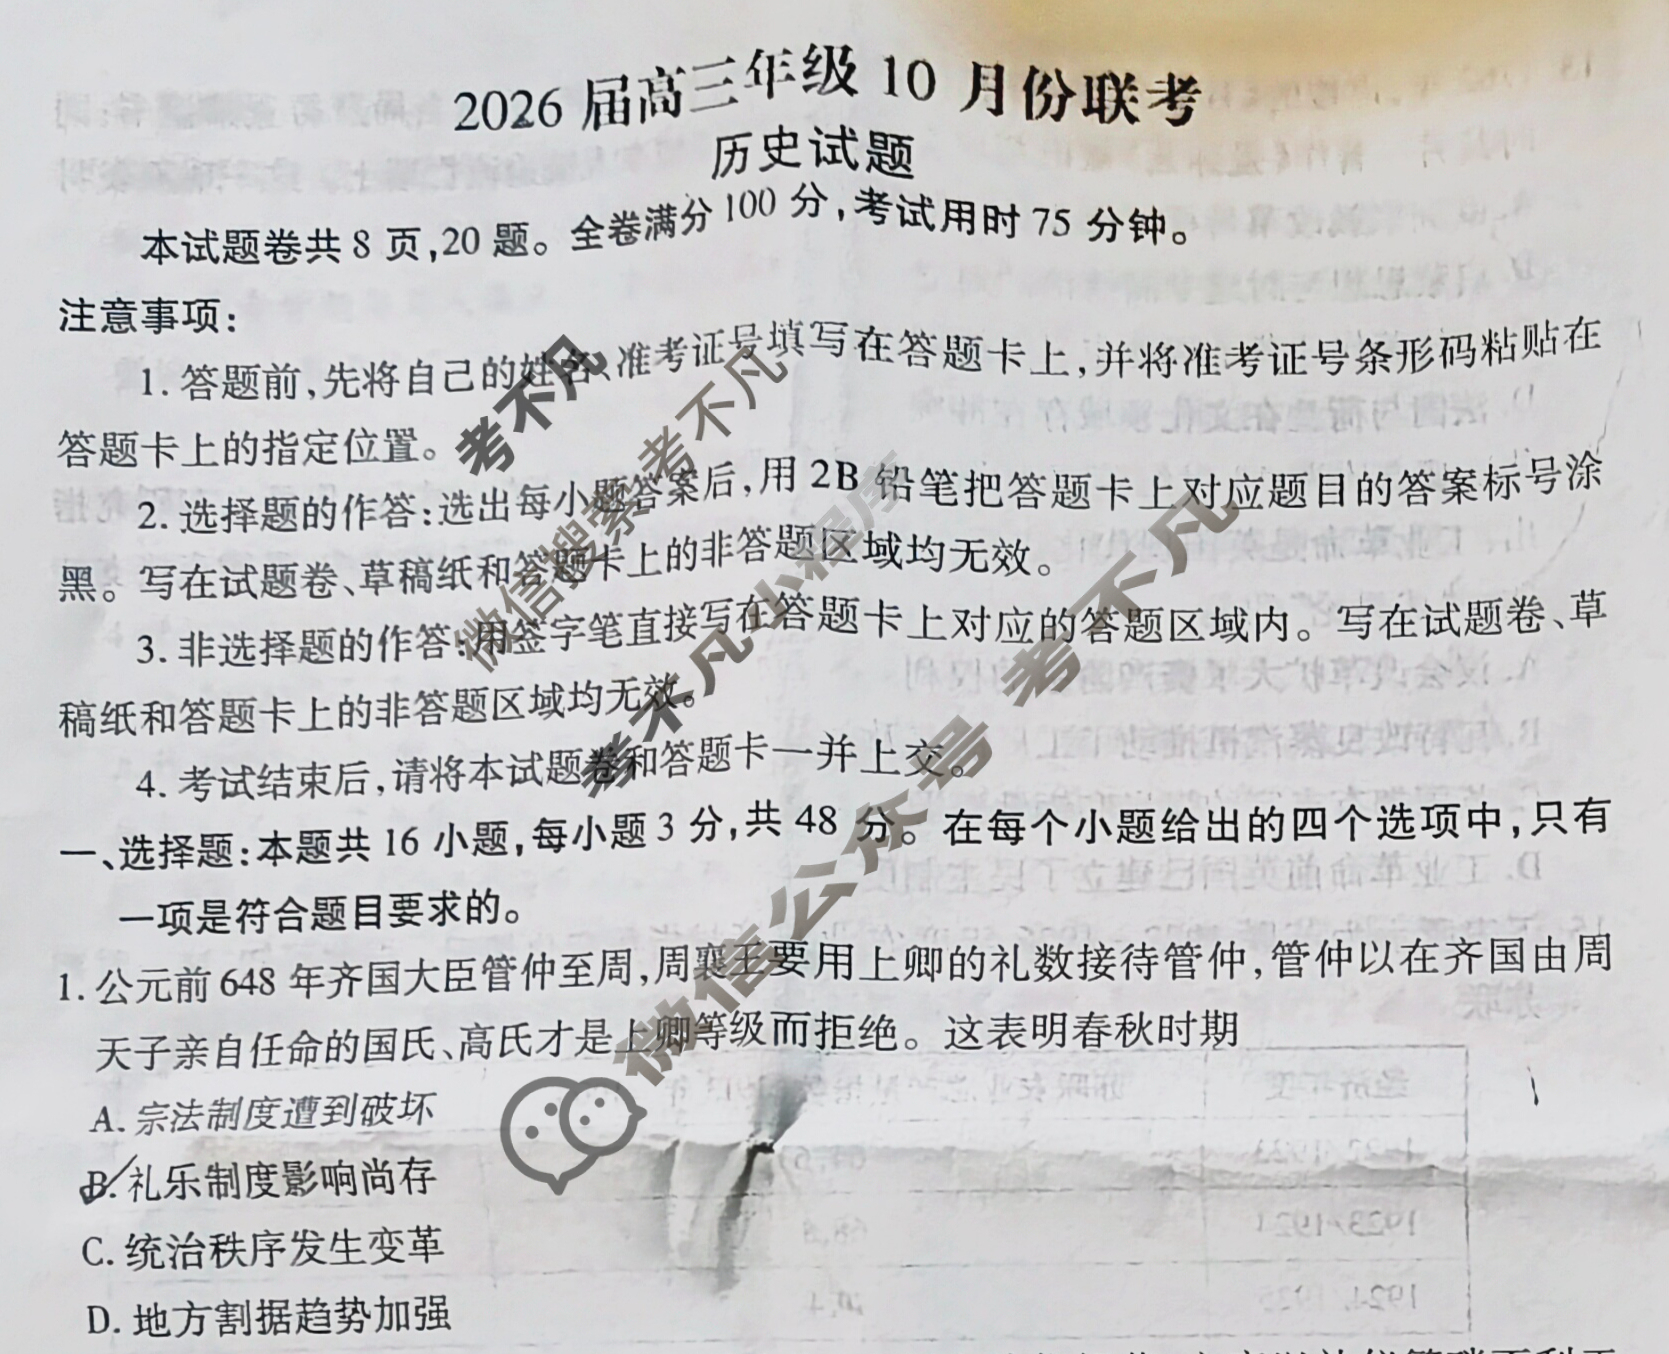 2026届高三年级10月份联考
历史试题
本试题卷共8页,20题。全卷满分100分,考试用时75分钟。
注意事项:
1. 答题前,先将自己的姓名、准考证号填写在答题卡上,并将准考证号条形码粘贴在
答题卡上的指定位置。
2. 选择题的作答:选出每小题答案后,用2B铅笔把答题卡上对应题目的答案标号涂
黑。写在试题卷、草稿纸和答题卡上的非答题区域均无效。
3. 非选择题的作答:用签字笔直接写在答题卡上对应的答题区域内。写在试题卷、草
稿纸和答题卡上的非答题区域均无效。
4. 考试结束后,请将本试题卷和答题卡一并上交。
一、选择题:本题共16小题,每小题3分,共48分。在每个小题给出的四个选项中,只有
一项是符合题目要求的。
1. 公元前648年齐国大臣管仲至周,周襄王要用上卿的礼数接待管仲,管仲以在齐国由周
天子亲自任命的国氏、高氏才是上卿等级而拒绝。这表明春秋时期
A. 宗法制度遭到破坏
B. 礼乐制度影响尚存
C. 统治秩序发生变革
D. 地方割据趋势加强
考不凡
微信搜索考不凡
考不凡小程序
微信公众号 考不凡